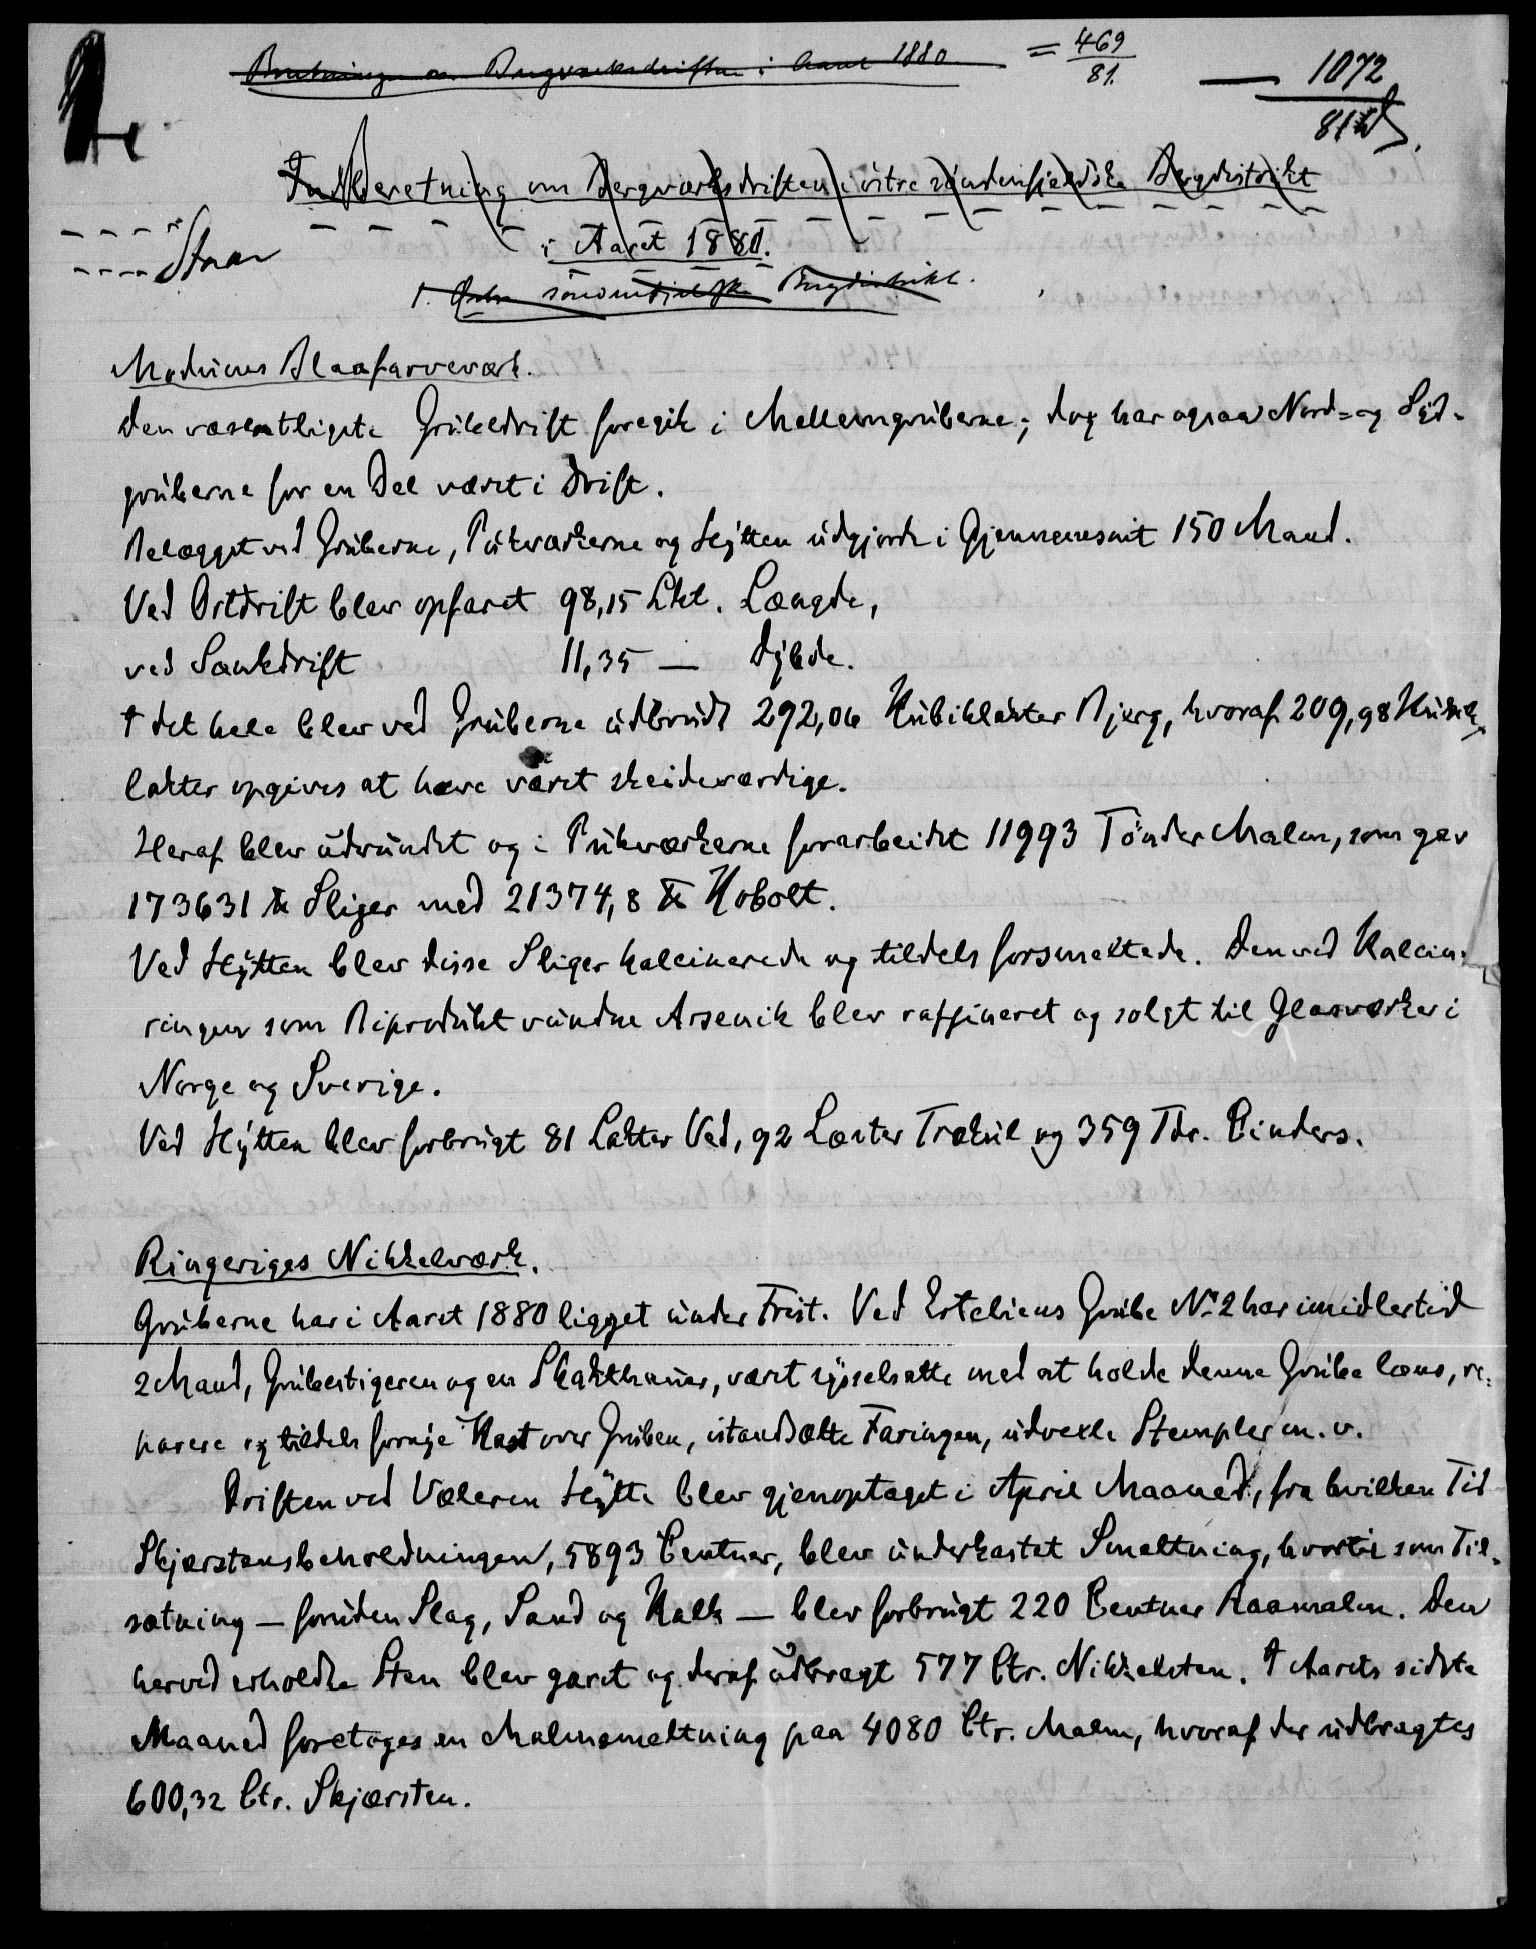 Beretning om Bergværksdriften i Aaret 1880 = 469/81.
1072/81
Indberetning om Bergværksdriften i östre söndenfjeldske Bergdistrikt
i Aaret 1880.
1. Östre söndenfjeldske Bergdistrikt.
Modums Blaafarveværk.
Den væsentligste Grubedrift foregik i Mellemgruberne; dog har ogsaa Nord- og Syd-
gruberne for en Del været i Drift.
Belægget ved Gruberne, Pukværkerne og Hytten udgjorde i Gjennemsnit 150 Mand.
Ved Ortdrift blev opfaret 98,15 Lkt. Længde,
ved Sænkdrift 11,35 — Dybde.
I det hele blev ved Gruberne udbrudt 292,06 Kubiklakter Bjerg, hvoraf 209,98 Kubik-
lakter opgives at have været skeideværdige.
Heraf blev udvundet og i Pukværkerne forarbeidet 11993 Tönder Malm, som gav
173631 ℔ Sliger med 21374,8 ℔ Kobolt.
Ved Hytten blev disse Sliger kalcinerede og tildels forsmeltede. Den ved Kalcine-
ringen som Biprodukt vundne Arsenik blev raffineret og solgt til Glasværker i
Norge og Sverige.
Ved Hytten blev forbrugt 81 Lakter Ved, 92 Læster Trækul og 359 Tdr. Cinders.
Ringeriges Nikkelværk.
Gruberne har i Aaret 1880 ligget under Frist. Ved Erteliens Grube No 2 har imidlertid
2 Mand, Grubestigeren og en Skakthauer, været sysselsatte med at holde denne Grube læns, re-
parere og tildels fornye Kast over Gruben, istandsætte Faringen, udvexle Stempler m. v.
Driften ved Væleren Hytte blev gjenoptaget i April Maaned, fra hvilken Tid
Skjærstensbeholdningen, 5893 Centner, blev underkastet Smeltning, hvortil som Til-
sætning — foruden Slag, Sand og Kalk — blev forbrugt 220 Centner Raamalm. Den
herved erholdte Sten blev garet og deraf udbragt 577 Ctr. Nikkelsten. I Aarets sidste
Maaned foretoges en Malmsmeltning paa 4080 Ctr. Malm, hvoraf der udbragtes
600,32 Ctr. Skjærsten.